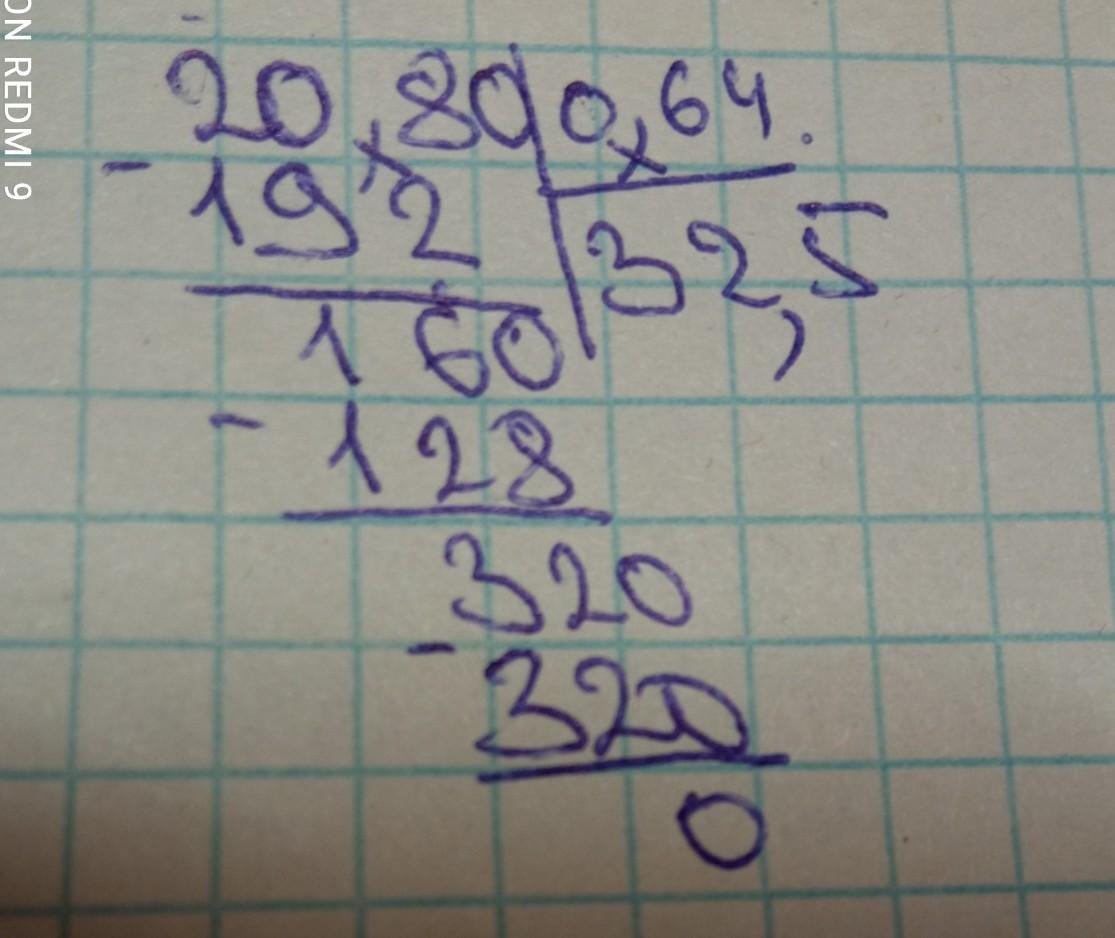 20,80 0,64.
- 192 32,5
160
- 128
320
- 320
0
ON REDMI 9